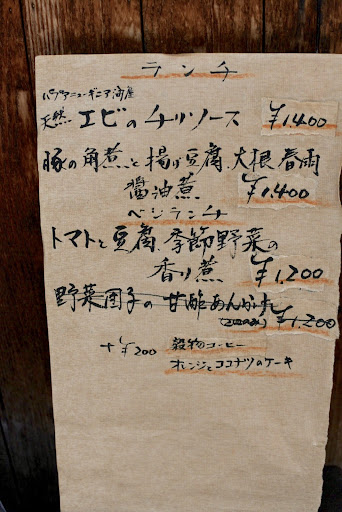 ランチ
パプアニューギニア海産
天然 エビのチリソース ¥1,400
豚の角煮と揚げ豆腐、大根、春雨
醤油煮 ¥1,400
ベジランチ
トマトと豆腐、季節野菜の
香り煮 ¥1,200
野菜団子の甘酢あんかけ
¥1,200
+¥200 穀物コーヒー
オレンジとココナツのケーキ